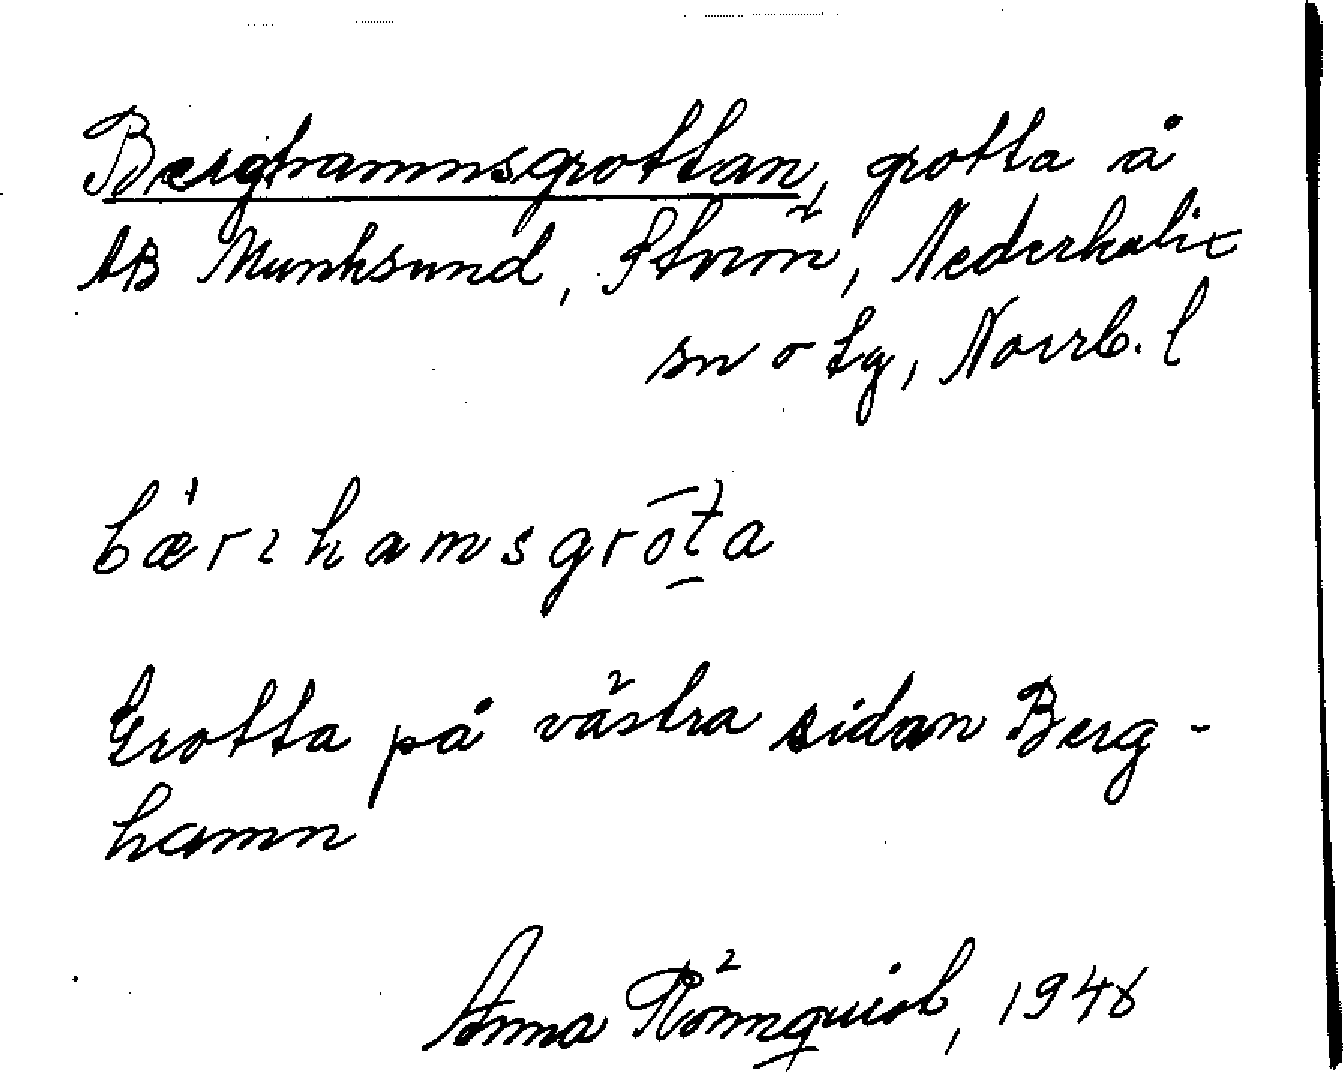 Berghamnsgrottan, grotta å
AB Munksund, Storön, Nederkalix
sn o tg, Norrb. l
bærɩhamsgrota
Grotta på västra sidan Berg-
hamn
Anna Rönnquist, 1948